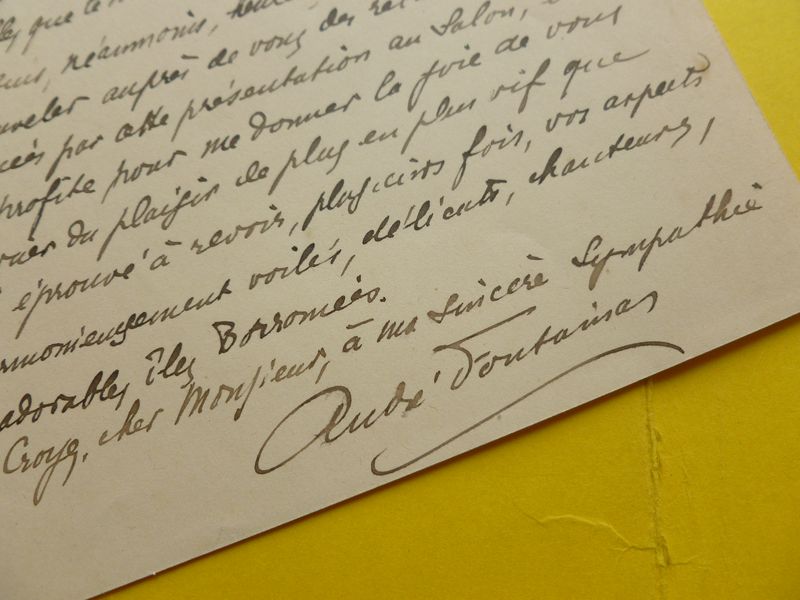 que le
néanmoins,
auprès de vous des
par cette présentation au Salon,
profite pour me donner la joie de vous
du plaisir de plus en plus vif que
éprouvé à revoir, plusieurs fois, vos aspects
harmonieusement voilés, délicats, chanteurs,
adorables Iles Borromées.
Croyez, cher Monsieur, à ma sincère sympathie
André Fontainas